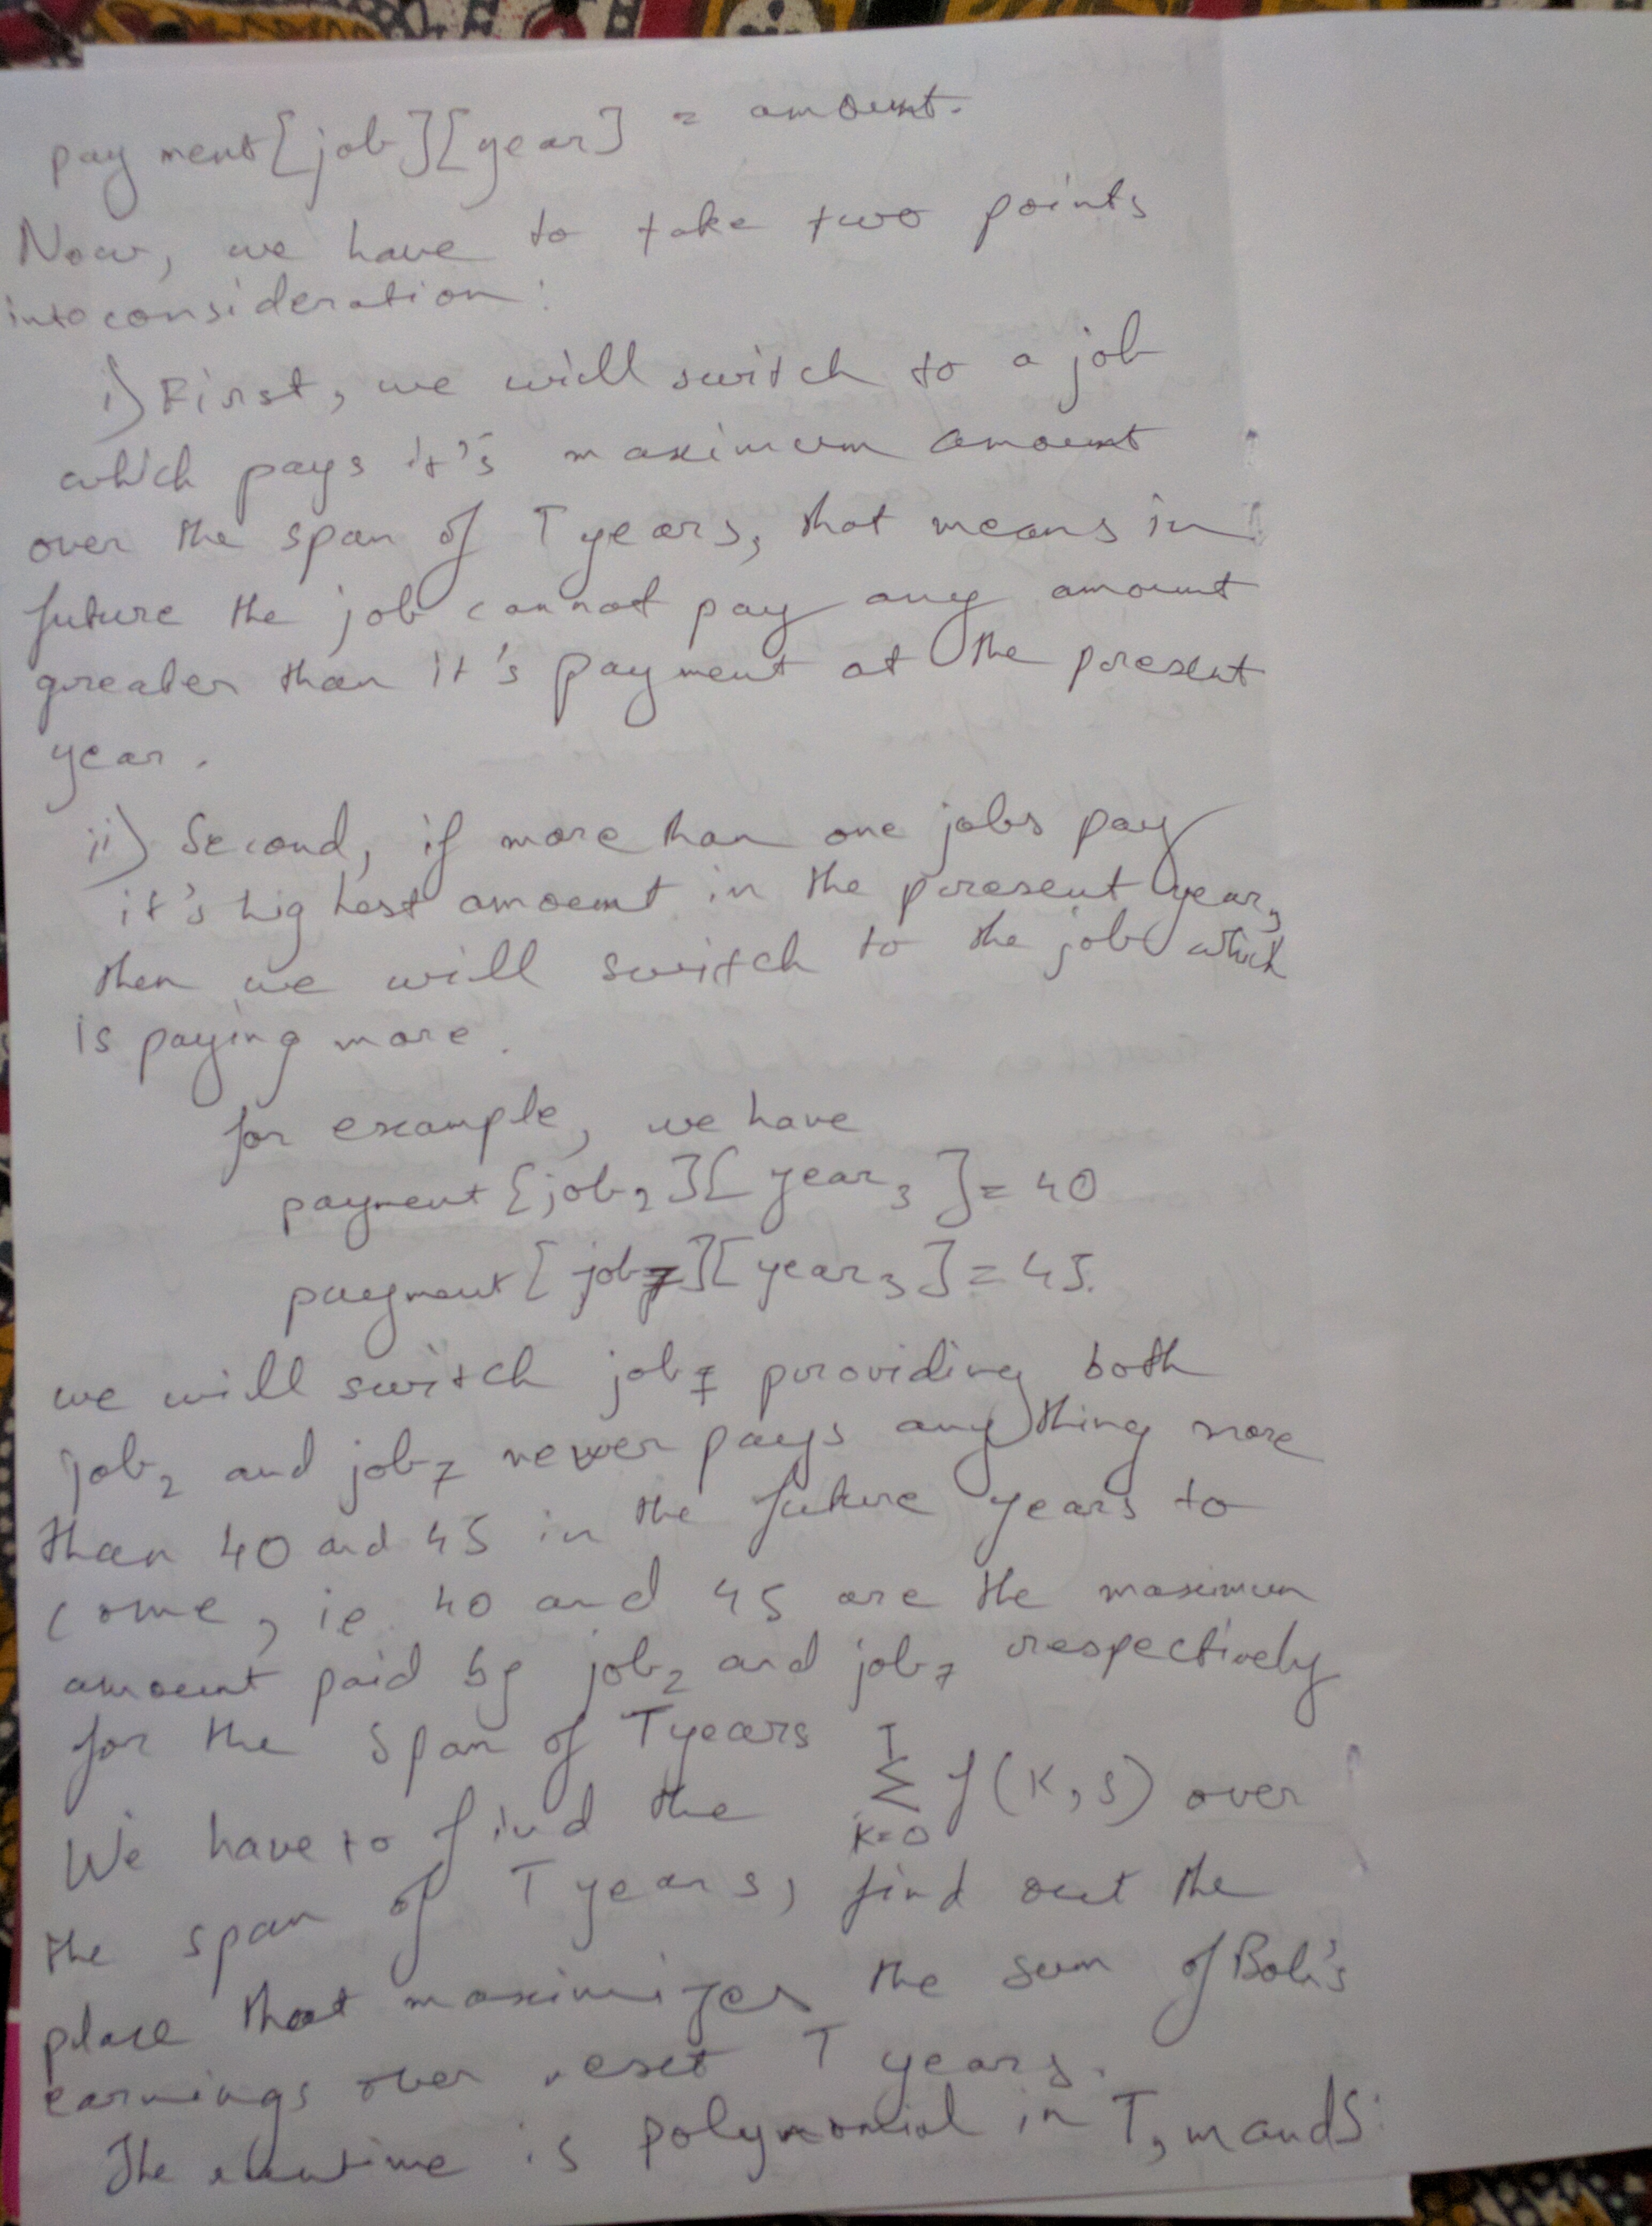 payment[job][year] = amount.
Now, we have to take two points
into consideration:
i) First, we will switch to a job
which pays it's maximum amount
over the span of T years, that means in
future the job cannot pay any amount
greater than it's payment at the present
year.
ii) Second, if more than one jobs pay
it's highest amount in the present year,
then we will switch to the job which
is paying more.
for example, we have
payment[job2][year3] = 40
payment[job7][year3] = 45.
we will switch job7 providing both
job2 and job7 never pays anything more
than 40 and 45 in the future years to
come, ie. 40 and 45 are the maximum
amount paid by job2 and job7 respectively
for the span of T years
We have to find the \sum_{K=0}^{T} f(K,S) over
the span of T years, find out the
place that maximizes the sum of Bob's
earnings over next T years.
The runtime is polynomial in T, m and S.